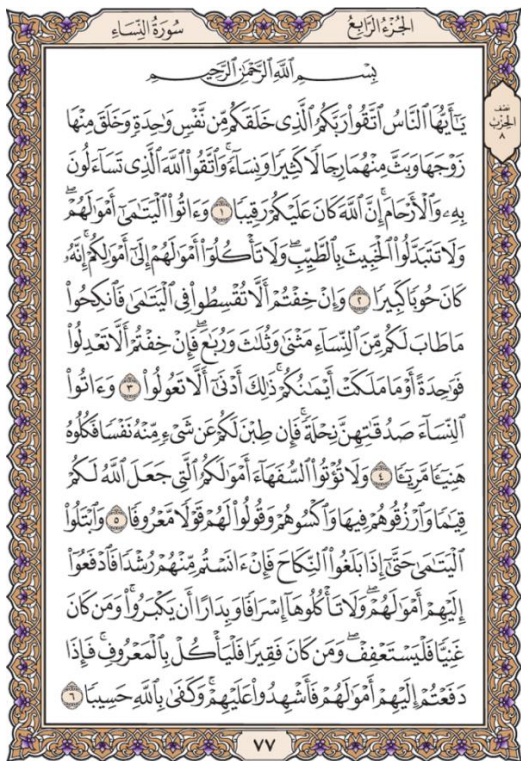 الجُزْءُ الرَّابِعُ
سُورَةُ النِّسَاءِ
نصف
الحِزْب
٨
بِسْمِ ٱللَّهِ ٱلرَّحْمَٰنِ ٱلرَّحِيمِ
يَـٰٓأَيُّهَا ٱلنَّاسُ ٱتَّقُوا۟ رَبَّكُمُ ٱلَّذِى خَلَقَكُم مِّن نَّفْسٍ وَٰحِدَةٍ وَخَلَقَ مِنْهَا
زَوْجَهَا وَبَثَّ مِنْهُمَا رِجَالًا كَثِيرًا وَنِسَآءً ۚ وَٱتَّقُوا۟ ٱللَّهَ ٱلَّذِى تَسَآءَلُونَ
بِهِۦ وَٱلْأَرْحَامَ ۚ إِنَّ ٱللَّهَ كَانَ عَلَيْكُمْ رَقِيبًا ١ وَءَاتُوا۟ ٱلْيَتَـٰمَىٰٓ أَمْوَٰلَهُمْ ۖ
وَلَا تَتَبَدَّلُوا۟ ٱلْخَبِيثَ بِٱلطَّيِّبِ ۖ وَلَا تَأْكُلُوٓا۟ أَمْوَٰلَهُمْ إِلَىٰٓ أَمْوَٰلِكُمْ ۚ إِنَّهُۥ
كَانَ حُوبًا كَبِيرًا ٢ وَإِنْ خِفْتُمْ أَلَّا تُقْسِطُوا۟ فِى ٱلْيَتَـٰمَىٰ فَٱنكِحُوا۟
مَا طَابَ لَكُم مِّنَ ٱلنِّسَآءِ مَثْنَىٰ وَثُلَـٰثَ وَرُبَـٰعَ ۖ فَإِنْ خِفْتُمْ أَلَّا تَعْدِلُوا۟
فَوَٰحِدَةً أَوْ مَا مَلَكَتْ أَيْمَـٰنُكُمْ ۚ ذَٰلِكَ أَدْنَىٰٓ أَلَّا تَعُولُوا۟ ٣ وَءَاتُوا۟
ٱلنِّسَآءَ صَدُقَـٰتِهِنَّ نِحْلَةً ۚ فَإِن طِبْنَ لَكُمْ عَن شَىْءٍ مِّنْهُ نَفْسًا فَكُلُوهُ
هَنِيٓـًٔا مَّرِيٓـًٔا ٤ وَلَا تُؤْتُوا۟ ٱلسُّفَهَآءَ أَمْوَٰلَكُمُ ٱلَّتِى جَعَلَ ٱللَّهُ لَكُمْ
قِيَـٰمًا وَٱرْزُقُوهُمْ فِيهَا وَٱكْسُوهُمْ وَقُولُوا۟ لَهُمْ قَوْلًا مَّعْرُوفًا ٥ وَٱبْتَلُوا۟
ٱلْيَتَـٰمَىٰ حَتَّىٰٓ إِذَا بَلَغُوا۟ ٱلنِّكَاحَ فَإِنْ ءَانَسْتُم مِّنْهُمْ رُشْدًا فَٱدْفَعُوٓا۟
إِلَيْهِمْ أَمْوَٰلَهُمْ ۖ وَلَا تَأْكُلُوهَآ إِسْرَافًا وَبِدَارًا أَن يَكْبَرُوا۟ ۚ وَمَن كَانَ
غَنِيًّا فَلْيَسْتَعْفِفْ ۖ وَمَن كَانَ فَقِيرًا فَلْيَأْكُلْ بِٱلْمَعْرُوفِ ۚ فَإِذَا
دَفَعْتُمْ إِلَيْهِمْ أَمْوَٰلَهُمْ فَأَشْهِدُوا۟ عَلَيْهِمْ ۚ وَكَفَىٰ بِٱللَّهِ حَسِيبًا ٦
٧٧